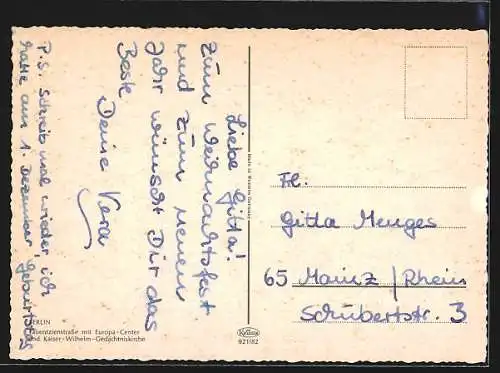 Liebe Gitta!
Zum Weihnachtsfest
und zum neuen
Jahr wünscht Dir das
Beste
Deine Vera
P.S. Schreib mal wieder, ich
hatte am 1. Dezember Geburtstag
Frl.
Gitta Menges
65 Mainz / Rhein
Schubertstr. 3
BERLIN
Tauentzienstraße mit Europa-Center
und Kaiser-Wilhelm-Gedächtniskirche
Krüger
921/82